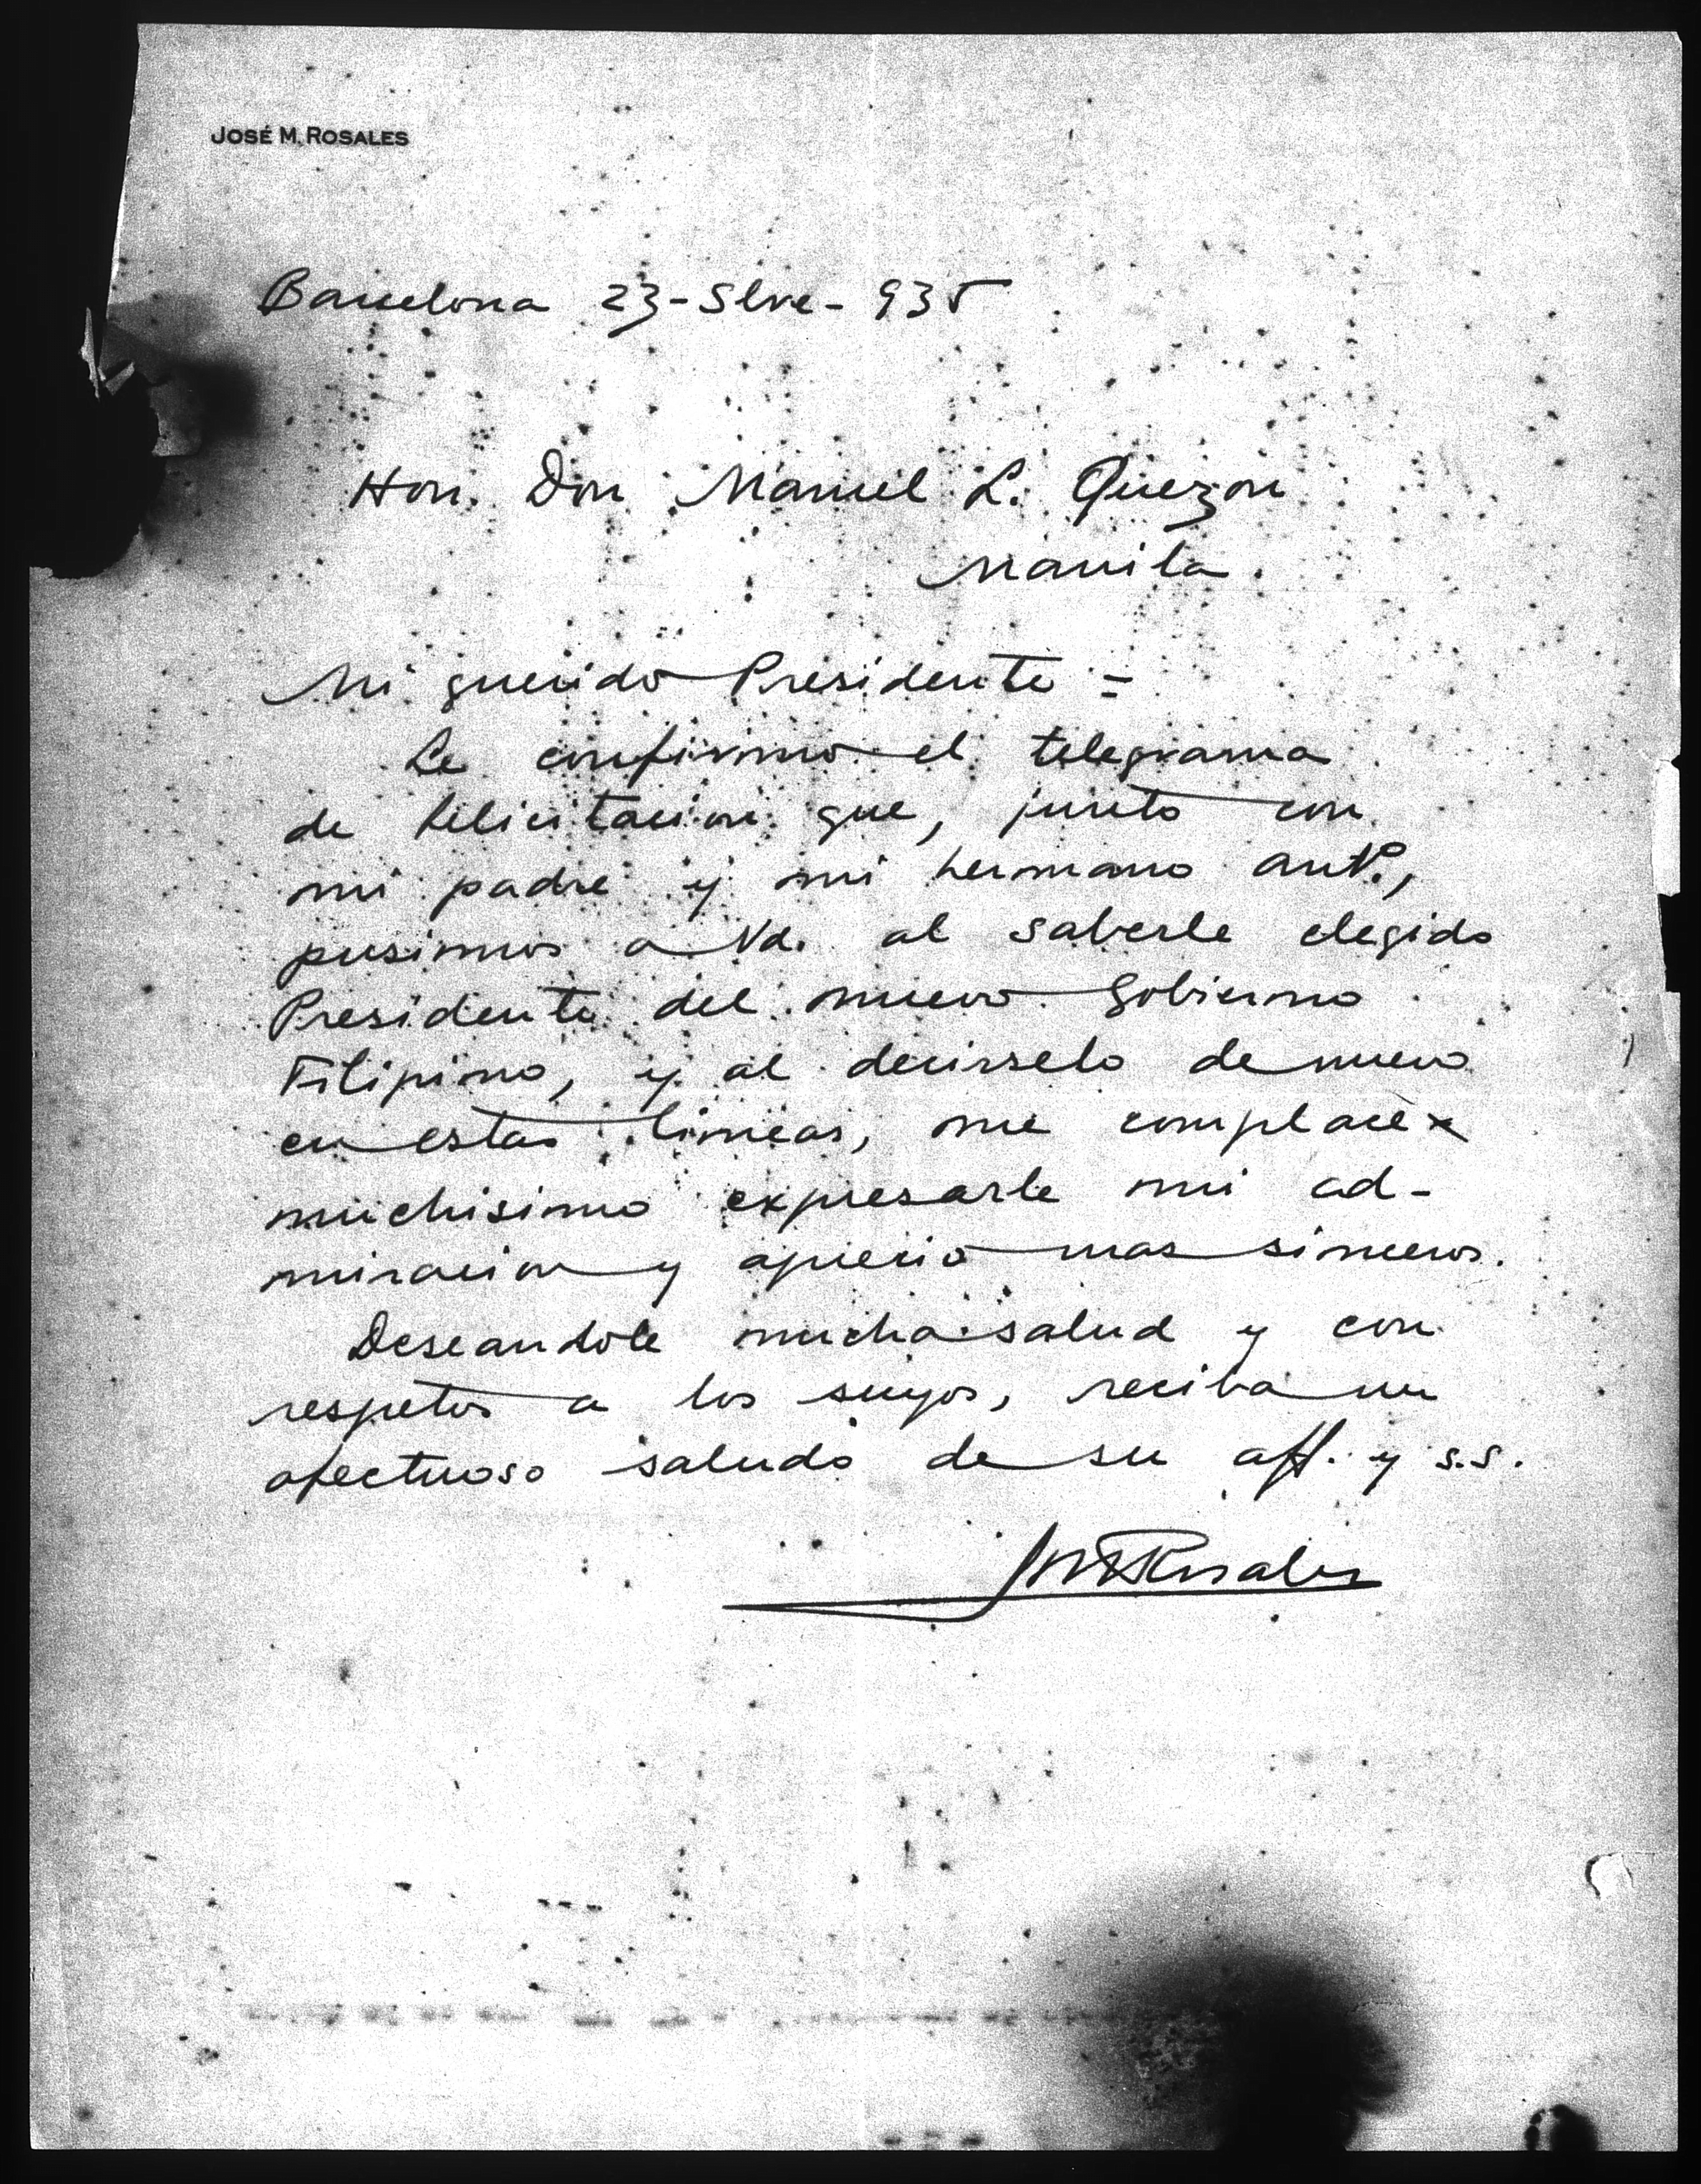 JOSÉ M. ROSALES
Barcelona 23-Sbre-935
Hon. Don Manuel L. Quezon
Manila.
Mi querido Presidente =
Le confirmo el telegrama
de felicitacion que, junto con
mi padre y mi hermano Antº,
pusimos a Vd. al saberle elegido
Presidente del nuevo Gobierno
Filipino, y al decirselo de nuevo
en estas lineas, me complace
muchisimo expresarle mi ad-
miracion y aprecio mas sinceros.
Deseandole mucha salud y con
respetos a los suyos, reciba un
afectuoso saludo de su aff. y s.s.
JM Rosales